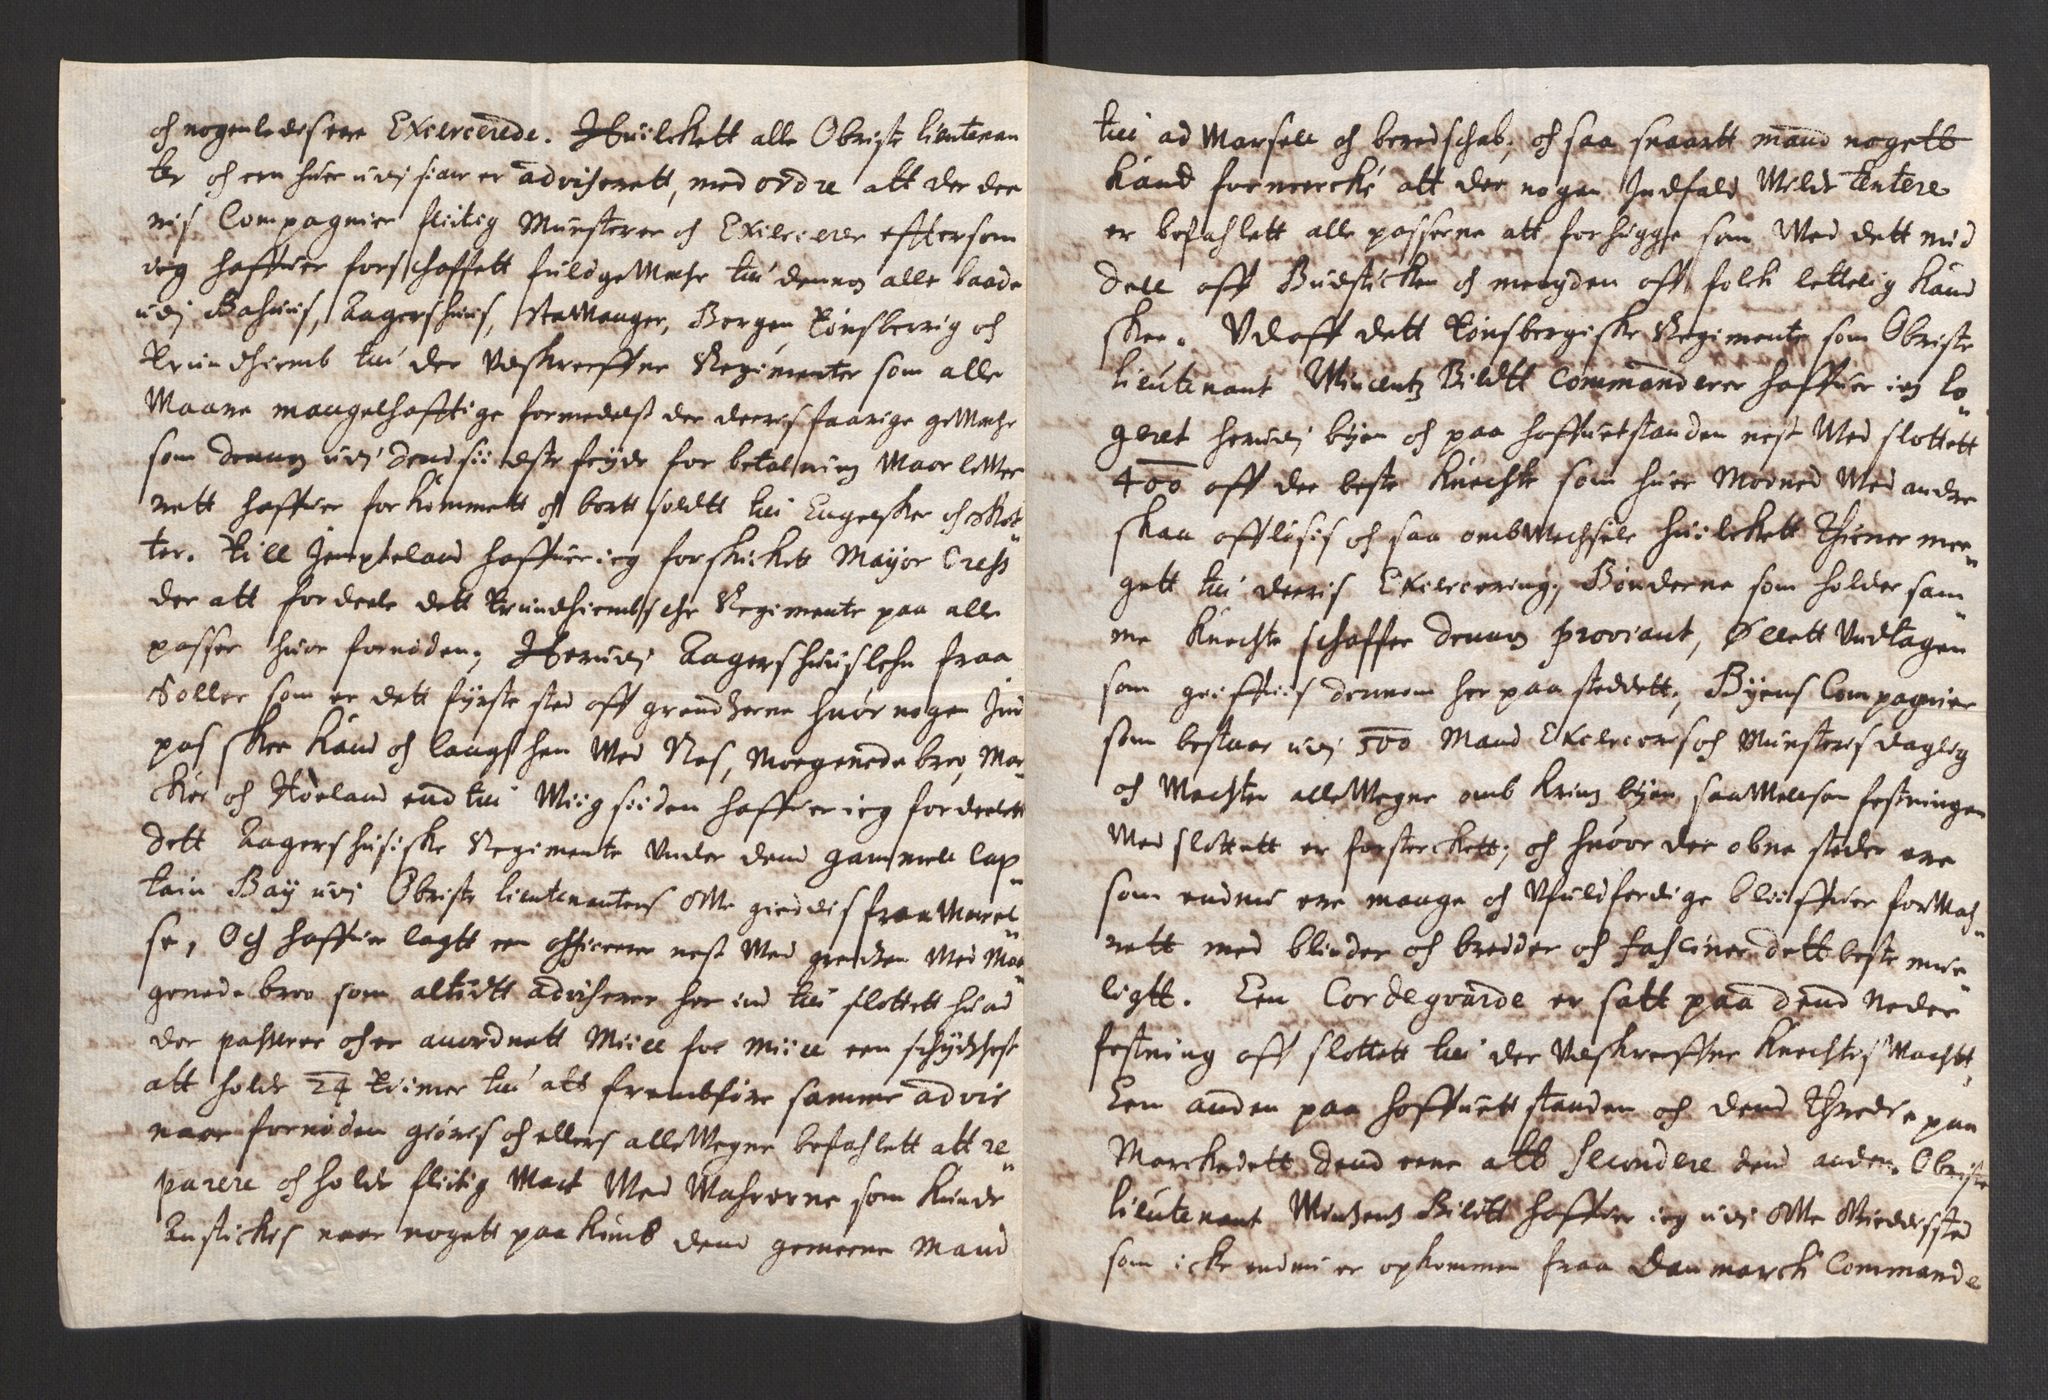 och nogenledis ere Exercerede. Huilckett alle Obriste lieutenan
ter och een huer udj siær er adviserett, med ordre att de dee
ris Compagnier flitig Munsterer och Exercerer effttersom
ieg haffuer forschaffett fuldgewæhr till dennom alle baade
udj Bahuus, Aagershuus, Stawanger, Bergen, Tønsberrig och
Trundhiemb till de Udskreffne Regimenter som alle
Waare mangelhafftige formedelst de deeris faarige gewæhr
som dennom udj dend siidste feyde for betalning Waar lewe
rett haffuer forkommett och bortt soldtt till Engelsker och Skot
ter. Till Jempteland haffuer ieg forskickett Mayor Cress
der att fordeele dett Trundhiembsche Regimente paa alle
passer huor fornøden; Herudj Aagershuuslehn fraa
Soller som er dett fyrste sted aff grendtzerne huor nogen Ind
pas skee kand och langst hen Wed Næs, Morgenedebroe, Mar
cker och Høeland end till Wiigsiiden haffuer ieg fordeelett
dett Aagershusiske Regimente Under dend gammell Cap
tein Bay udj Obriste lieutenantens Owe Gieddis fraawerel
se, Och haffuer lagtt een officerer nest Wed grentzen Wed Mor
genedebroe som altiidtt adviserer her ind till slottett huad
der passerer och er anordnett Miill for Miill een schydtzhest
att holde 24 Tiimer till att frembføre samme advis
naar fornøden giøris och ellers alle Wegne befahlett att re
parere och holde flitig Wact Wed Wahrerne som kunde
Anstickis naar nogett paakomb dend gemeene Mand
till ad Marsell och beredschab, och saa snaartt mand nogett
kand formercke att der nogen Indfald Wilde tentere
er befahlett alle passerne att forhugge som Wed dett mid
dell aff Budsticken och mengden aff folck lettelig kand
skee. Udaff dett Tønsbergiske Regimente som Obriste
lieutenant Wincentz Bildtt Commanderer haffuer ieg lo
geret herudj byen och paa hoffuetstanden nest Wed slottett
400 aff de beste knechte som huer Moned Wed andre
skall affløsis och saa ombwechsele huilckett Thiener mee
gett till deeris Exercering; Bønderne som holder sam
me knechte schaffer dennom proviant, Øllett Undtagen
som griffuis dennom her paa steddett; Byens Compagnier
som bestaar udj 500 Mand Exerceris och Munsteris daglig
och Wachten alle Wegne omb kring byen saawellsom festningen
Wed slottett er forsterckett; och huoor der obne steder ere
som endnu ere mange och Ufuldferdige bliiffuer forwah
rett med blinder och bredder och fasciner dett beste mue
ligtt. Een Cordegvarde er satt paa dend Neder
festning aff slottett till de Udskreffne knechtis Wachtt,
Een anden paa hoffuett standen och dend Thredie paa
Marckedett dend eene att Secondere dend anden. Obriste
lieutenant Wintzentz Bildtt haffuer ieg udj Owe Gieddis sted
som icke endnu er opkommen fraa Danmarck Commande